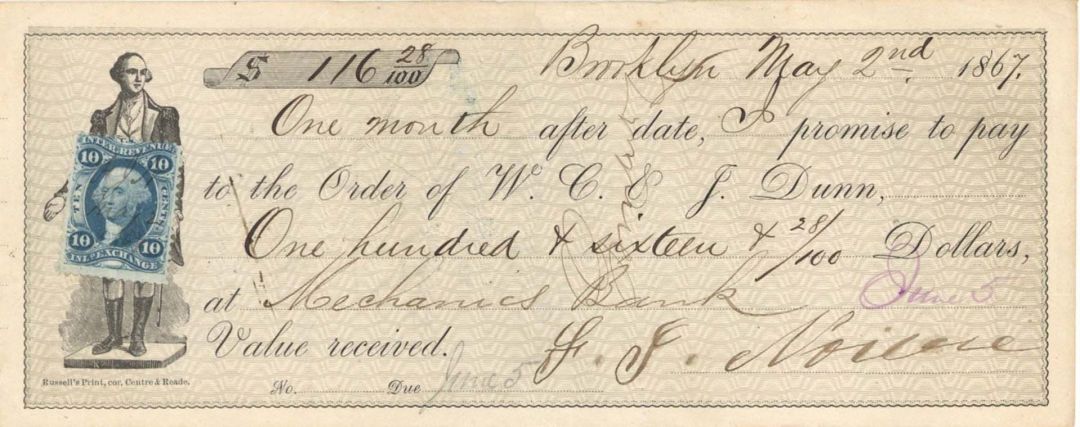 $ 116 28/100 Brooklyn May 2nd 1867.
One month after date, I promise to pay
to the Order of W. C. & J. Dunn,
One hundred & sixteen & 28/100 Dollars,
at Mechanics Bank June 5
Value received.
No. Due June 5
INTER. REVENUE
10 10
TEN CENTS
10 10
INL. EXCHANGE
Russell's Print, cor, Centre & Reade.